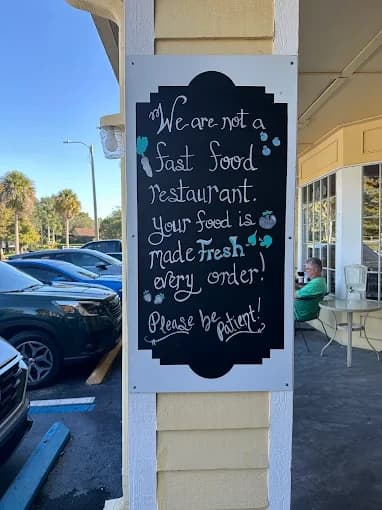 We are not a
fast food
restaurant.
Your food is
made Fresh
every order!
Please be Patient!